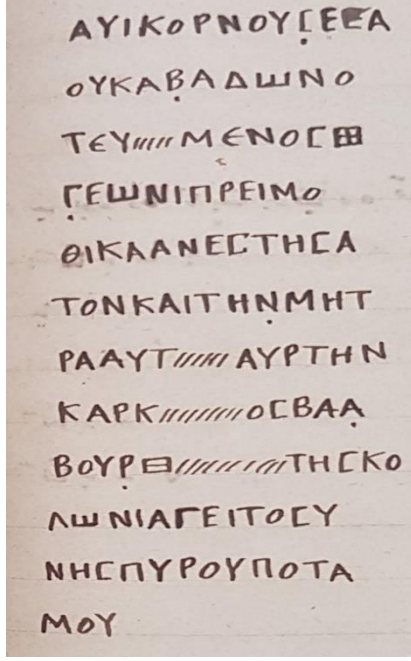 ΑΥΙΚΟΡΝΟΥΣΕΞΑ
ΟΥΚΑΒΑΔΩΝΟ
ΤΕΥ/////ΜΕΝΟΣ⊞
ΓΕΩΝΙΠΡΕΙΜΟ
ΘΙΚΑΑΝΕΣΤΗΣΑ
ΤΟΝΚΑΙΤΗΝΜΗΤ
ΡΑΑΥΤ/////ΑΥΡΤΗΝ
ΚΑΡΚ////////ΟΣΒΑΑ
ΒΟΥΡ⊟/////////ΤΗΣΚΟ
ΛΩΝΙΑΓΕΙΤΟΣΥ
ΝΗΣΠΥΡΟΥΠΟΤΑ
ΜΟΥ